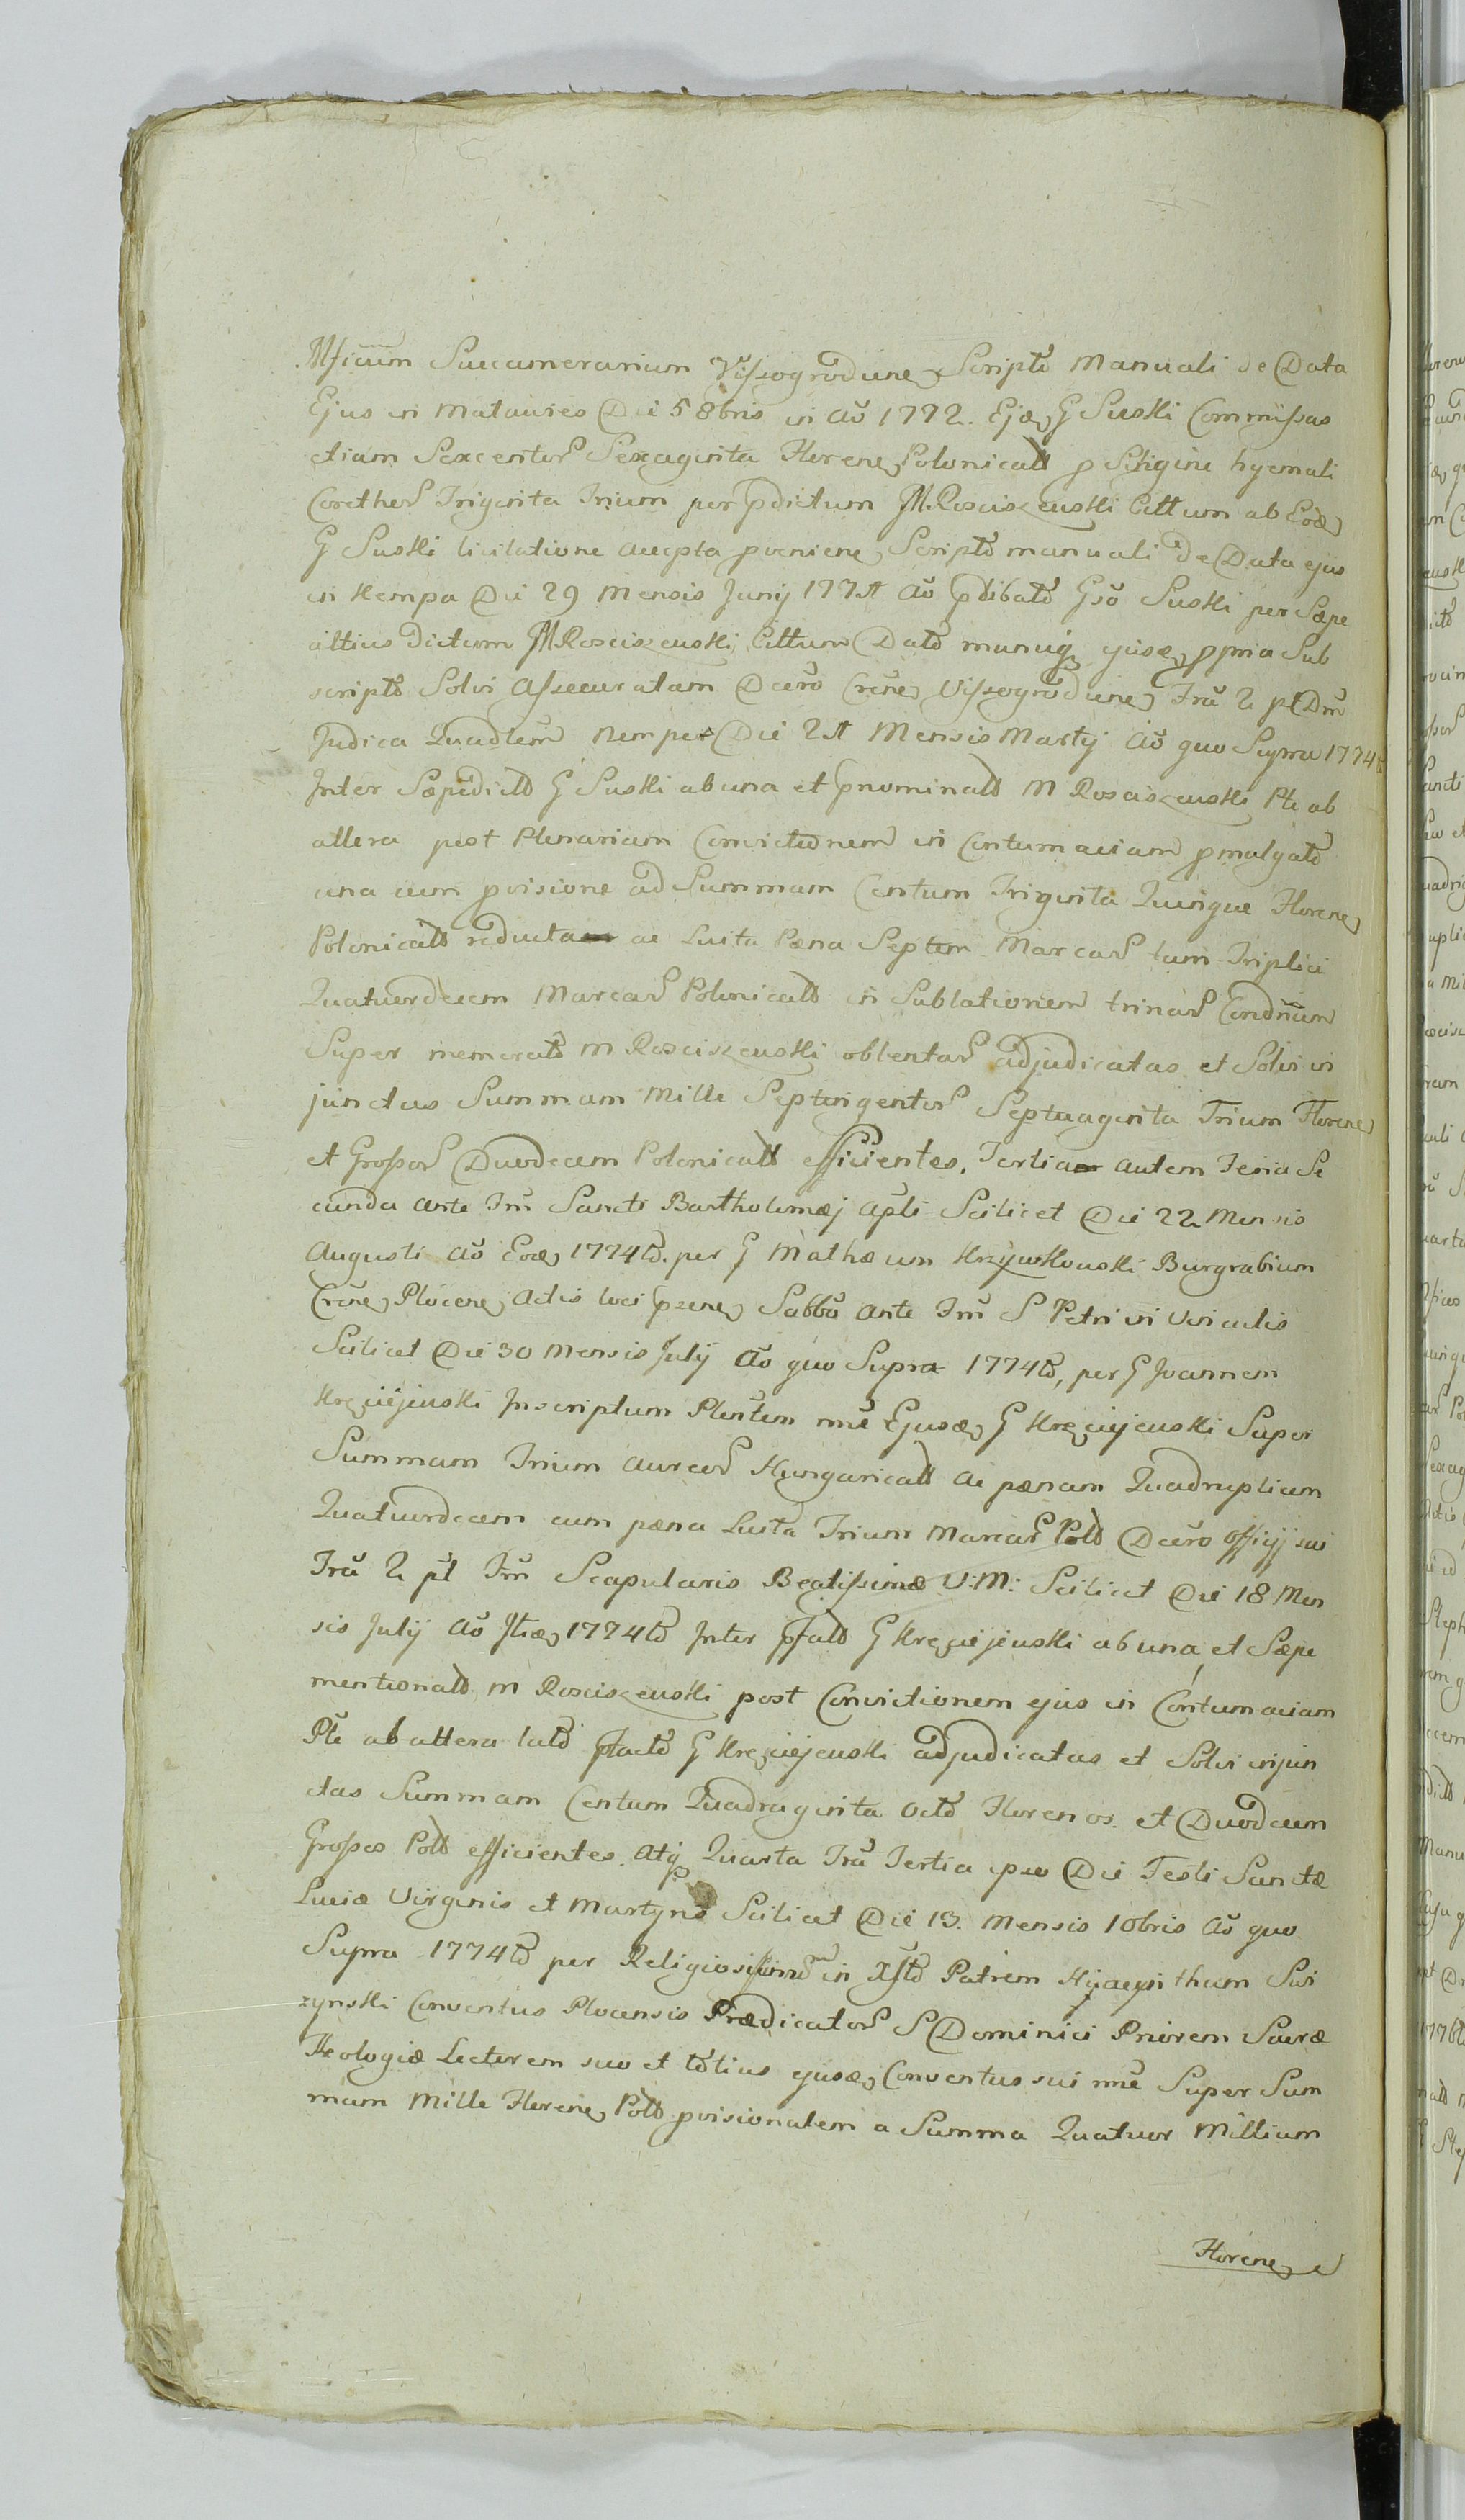 Mficum Succamerarium Vissogrodiene Scripto Manuali de Data
Ejus in Mataures Die 5 8bris in Ao 1772. Ejdē G Suski Commissas
etiam Sexcentor Sexaginta Florene Polonicall p Siligine hyemali
Corether Triginta Trium per pdictum M. Rosciszeuski Cittum ab Eodē
G Suski licitatione accepta pveniene Scripto manuali de Data ejus
in Kempa Die 29 Mensis Junij 177 Ao pdibato Gso Suski per Sæpe
altius dictum M Rosciszeuski Cittum Dato manuq ejusdē ppria Sub
scripto Solvi Assecuratam Dcero Crene Vissogrodiene Fra 2 pt Dm
Judica Quadlem Nempe Die 21 Mensis Martij Ao quo Supra 1774to
Inter Sæpedicto G Suski ab una et pnominato M Rosciszeuski Pte ab
altera post Plenariam Convictionem in Contumaciam pmulgato
una cum pvisione ad Summam Centum Triginta Quinque Florene
Polonicall reducta ac Luita Pæna Septem Marcar tum Triplici
Quatuordecem Marcar Polonicall in Sublationem trinar Condnum
Super memorato M Rosciszeuski obtentar adjudicatas et Solvi in
junctas Summam Mille Septingentor Septuaginta Trium Florene
et Grossor Duodecem Polonicall efficientes, Tertia autem Feria Se
cunda ante Fm Sancti Bartholomæj Apli Scilicet Die 22 Mensis
Augusti Ao Eodē 1774to. per G Mathæum Krzywkouski Burgrabium
Crene Plocene Actis loci psene Sabbo ante Fm S Petri in Vinculis
Scilicet Die 30 Mensis Julij Ao quo Supra 1774to, per G Joannem
Krzciejeuski Inscriptum Plentem nne Ejusdē G Krzciejeuski Super
Summam Trium Aureor Hungaricall ac pænam Quadruplicem
Quatuordecem cum pæna Luita Trium Marcar Poll Dcero Officij sui
Fra 2 pt Fm Scapularis Beatissimæ V: M: Scilicet Die 18 Men
sis Julij Ao Itidē 1774to Inter pfato G Krzciejeuski ab una et Sæpe
mentionato M Rosciszeuski post Convictionem ejus in Contumaciam
Pte ab altera lato ptacto G Krzciejeuski adjudicatas et Solvi injun
ctas Summam Centum Quadraginta Octo Florenos et Duodecem
Grossos Poll efficientes. Atq Quarta Fra Tertia ipso Die Festi Sanctæ
Luciæ Virginis et Martyris Scilicet Die 13. Mensis 10bris Ao quo
Supra 1774to per Religiosissimum in Xsto Patrem Hijacynthum Swi
zynski Conventus Plocensis Prædicator S Dominici Priorem Sacræ
Theologiæ Lectorem suo et totius ejusdē Conventus sui nne Super Sum
mam Mille Florene Poll pvisionalem a Summa Quatuor Millium
Florene